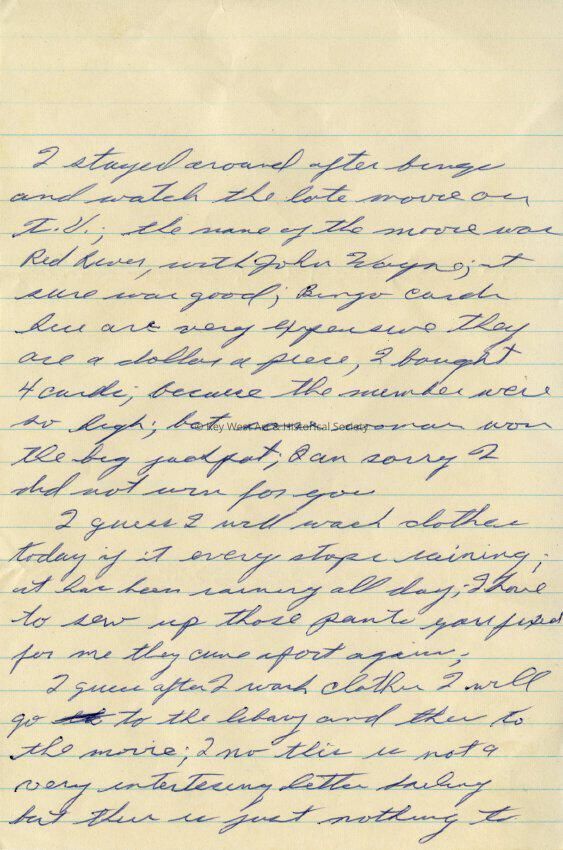 I stayed around after bingo
and watch the late movie on
T.V.; the name of the movie was
Red River, with John Wayne; it
sure was good; Bingo cards
here are very expensive they
are a dollar a piece, I bought
4 cards; because the number were
so high; but woman won
the big jackpot; I am sorry I
did not win for you
I guess I will wash clothes
today if it every stops raining;
it has been rainny all day; I have
to sew up those pants you fixed
for me they came apart again;
I guess after I wash clothes I will
go to the libary and then to
the movie; I no this is not a
very intertesing letter darling
but there is just nothing to
© Key West Art & Historical Society